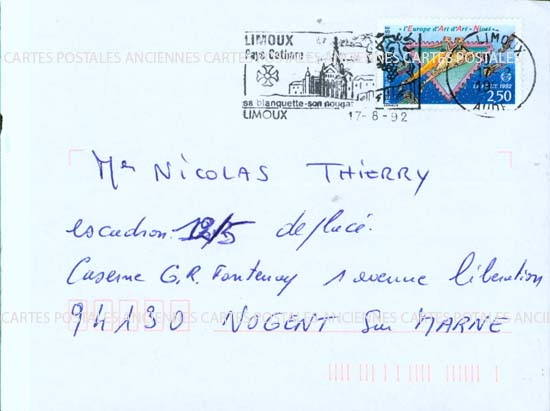 LIMOUX
Pays Cathare
sa blanquette-son nougat
LIMOUX
17-8-92
"l'Europe d'Art d'Art - Nice"
LIMOUX
AUDE
1992
2,50
CARTES POSTALES ANCIENNES CARTES POSTALES ANCIENNES CARTES POSTALES ANCIENNES
Mr NICOLAS THIERRY
escadron 12/5 deplacé.
Caserne G.R. Fontenay 1 avenue libération
94130 NOGENT Sur MARNE
CARTES POSTALES ANCIENNES CARTES POSTALES ANCIENNES CARTES POSTALES ANCIENNES